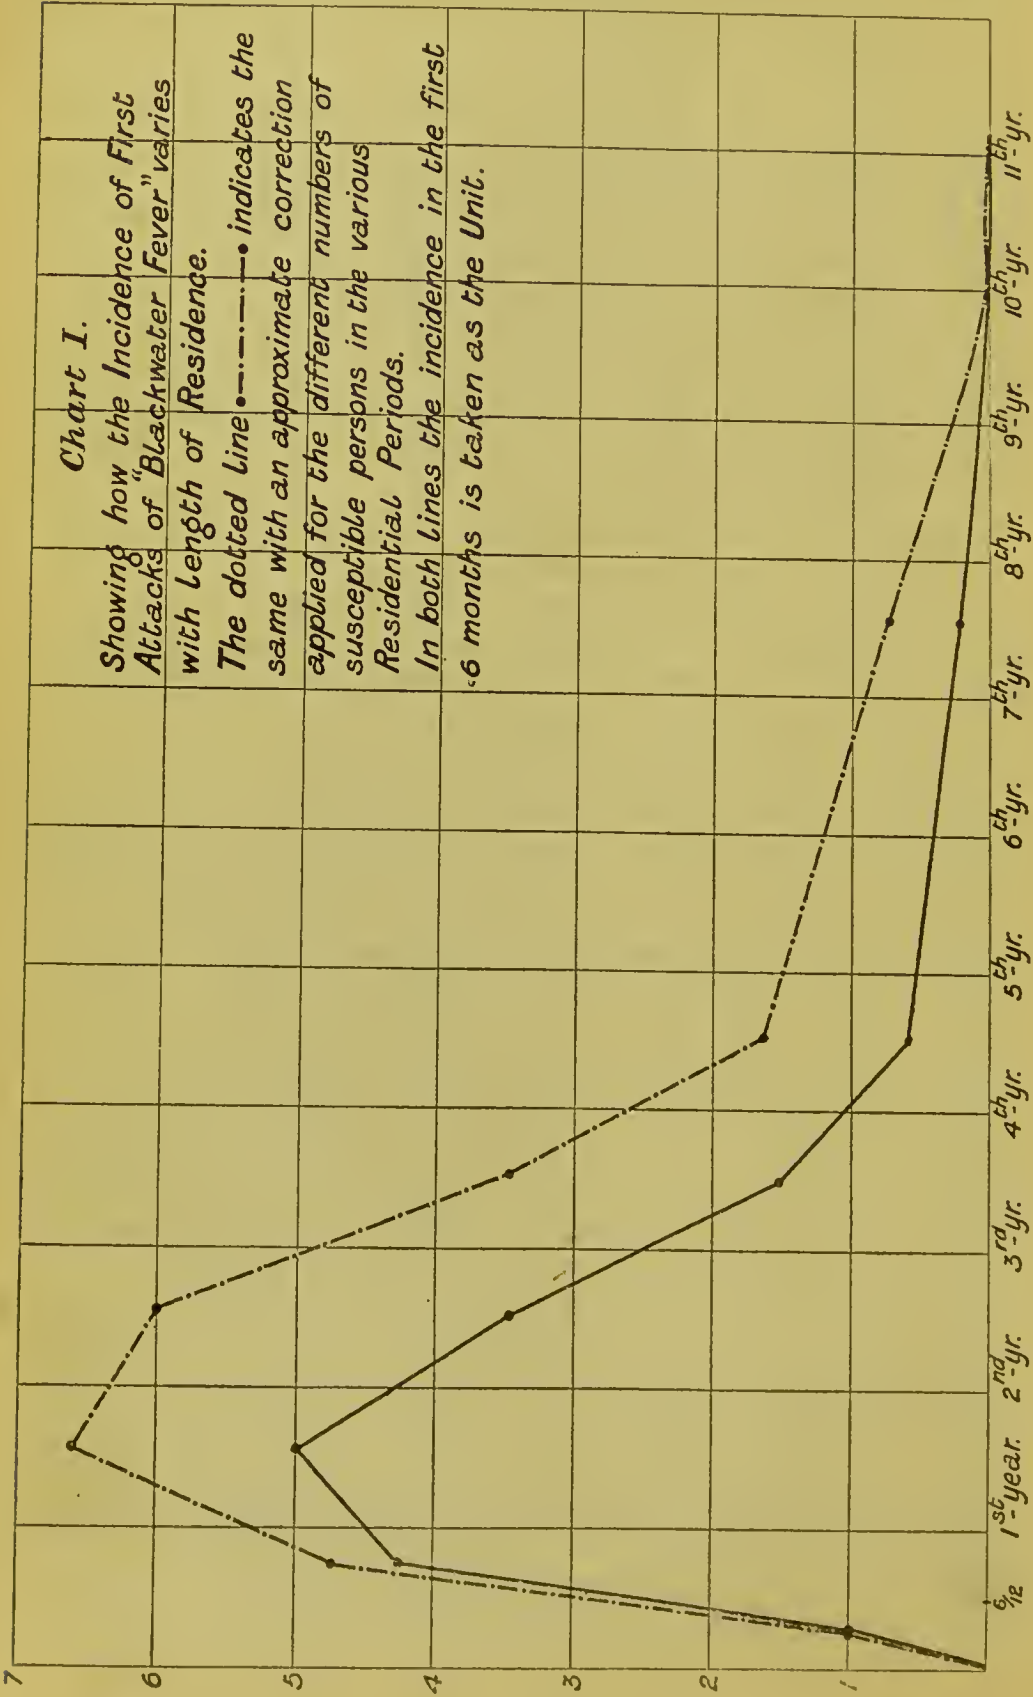 Chart I.
Showing how the Incidence of First
Attacks of "Blackwater Fever" varies
with length of Residence.
The dotted line •—·—·—·—• indicates the
same with an approximate correction
applied for the different numbers of
susceptible persons in the various
Residential Periods.
In both lines the incidence in the first
6 months is taken as the Unit.
7
6
5
4
3
2
1
6/12
1st year.
2nd yr.
3rd yr.
4th yr.
5th yr.
6th yr.
7th yr.
8th yr.
9th yr.
10th yr.
11th yr.